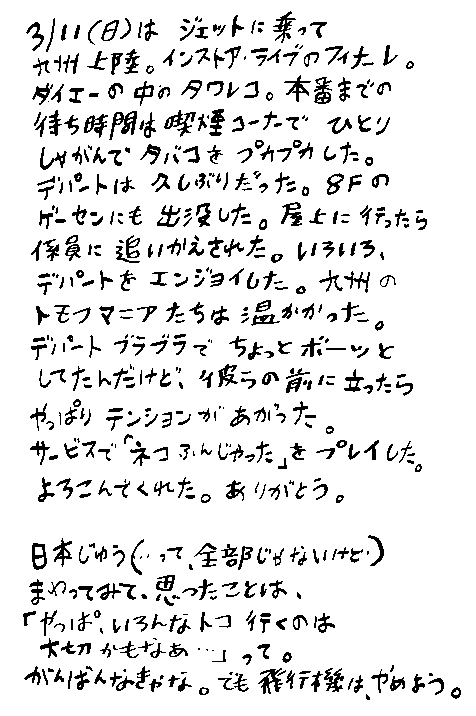 3/11(日)は ジェットに乗って
九州上陸。インストア・ライブのフィナーレ。
ダイエーの中のタワレコ。本番までの
待ち時間は喫煙コーナーで ひとり
しゃがんでタバコを プカプカした。
デパートは 久しぶりだった。8Fの
ゲーセンにも 出没した。屋上に行ったら
係員に 追いかえされた。いろいろ、
デパートを エンジョイした。九州の
トモフマニアたちは 温かかった。
デパート ブラブラで ちょっと ボーッと
してたんだけど、彼らの前に立ったら
やっぱり テンションが あがった。
サービスで「ネコふんじゃった」を プレイした。
よろこんでくれた。ありがとう。

日本じゅう(‥って、全部じゃないけど‥)
まわってみて、思ったことは、
「やっぱ、いろんなトコ 行くのは
大切かもなあ…」って。
がんばんなきゃな。でも 飛行機は、やめよう。